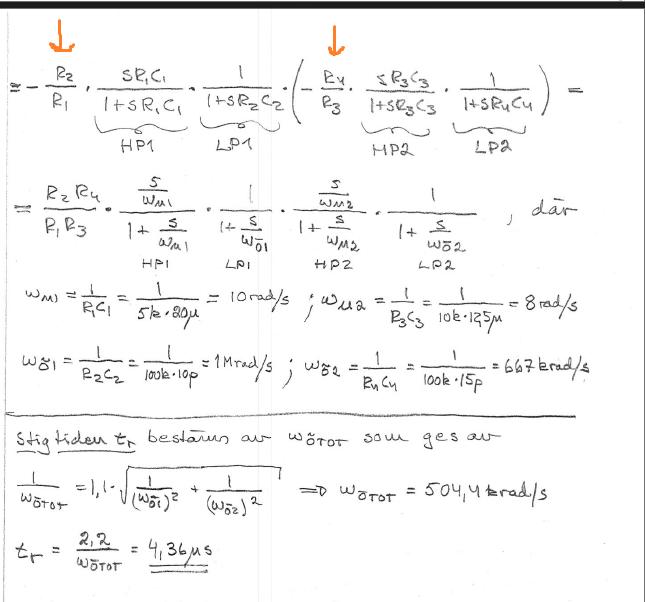 = - R₂/R₁ · sR₁C₁/(1+sR₁C₁) · 1/(1+sR₂C₂) · (- R₄/R₃ · sR₃C₃/(1+sR₃C₃) · 1/(1+sR₄C₄)) =
HP1 LP1 HP2 LP2
= R₂R₄/R₁R₃ · (s/ωu1)/(1+ s/ωu1) · 1/(1+ s/ωö1) · (s/ωu2)/(1+ s/ωu2) · 1/(1+ s/ωö2) , där
HP1 LP1 HP2 LP2
ωu1 = 1/R₁C₁ = 1/(5k·20μ) = 10 rad/s ; ωu2 = 1/R₃C₃ = 1/(10k·12,5μ) = 8 rad/s
ωö1 = 1/R₂C₂ = 1/(100k·10p) = 1Mrad/s ; ωö2 = 1/R₄C₄ = 1/(100k·15p) = 667 krad/s
Stigtiden tr bestäms av ωöTOT som ges av
1/ωöTOT = 1,1·√(1/(ωö1)² + 1/(ωö2)²) ⇒ ωöTOT = 504,4 krad/s
tr = 2,2/ωöTOT = 4,36 μs